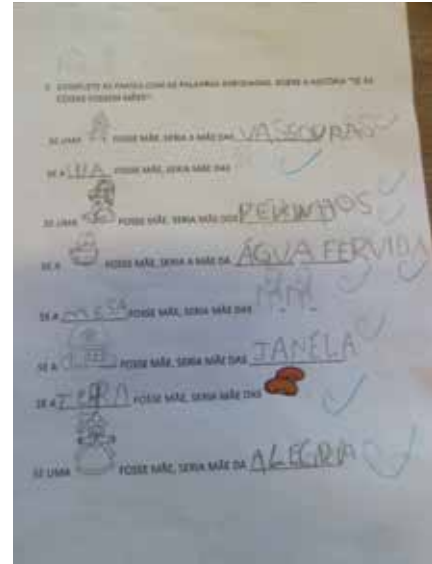 COMPLETE AS FRASES COM AS PALAVRAS ADEQUADAS, SOBRE A HISTÓRIA "SE AS
COISAS FOSSEM MÃES":
SE UMA FOSSE MÃE, SERIA A MÃE DAS VASSOURAS
SE A LUA FOSSE MÃE, SERIA MÃE DAS
SE UMA FOSSE MÃE, SERIA MÃE DOS
SE A FOSSE MÃE, SERIA A MÃE DA ÁGUA FERVIDA
SE A MESA FOSSE MÃE, SERIA MÃE DAS
SE A FOSSE MÃE, SERIA MÃE DAS JANELA
SE A TERRA FOSSE MÃE, SERIA MÃE DAS
SE UMA FOSSE MÃE, SERIA MÃE DA ALEGRIA